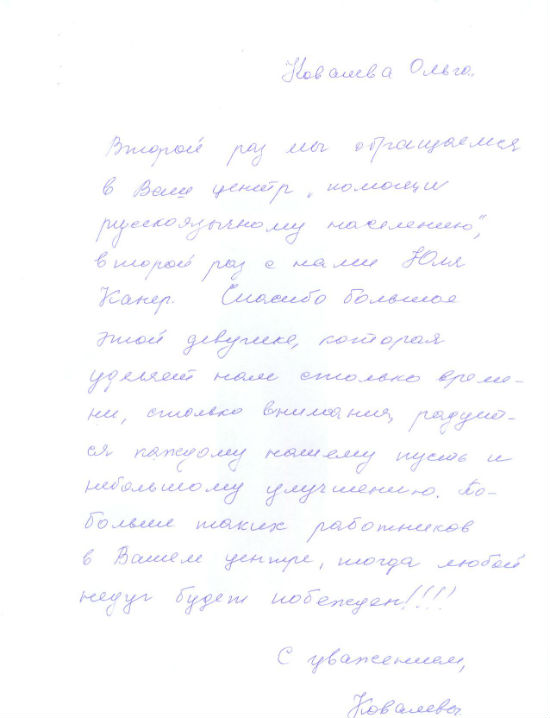 Ковалева Ольга.
Второй раз мы обращаемся
в Ваш центр „помощи
русскоязычному населению“,
второй раз с нами Юля
Канер. Спасибо большое
этой девушке, которая
уделяет нам столько време-
ни, столько внимания, радует-
ся каждому нашему пусть и
небольшому улучшению. По-
больше таких работников
в Вашем центре, тогда любой
недуг будет побежден!!!!
С уважением,
Ковалевы